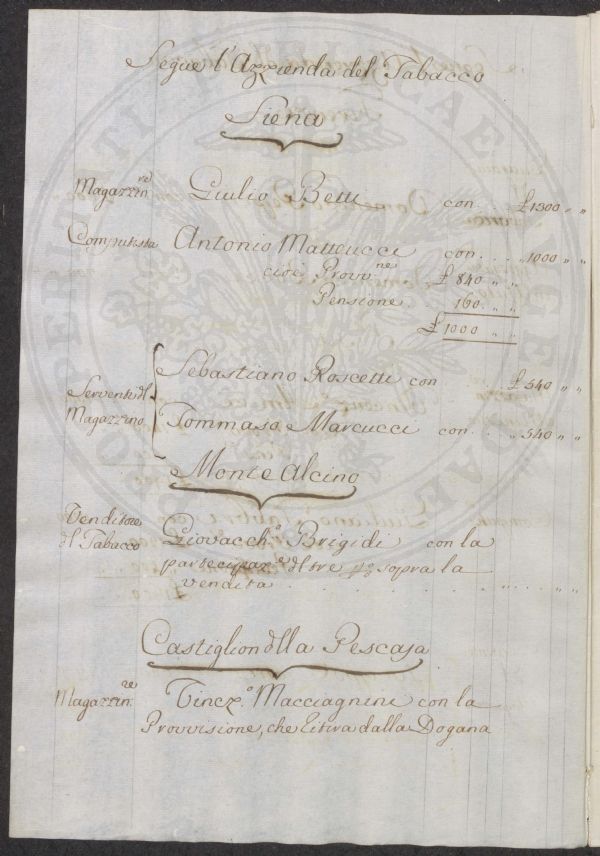 Segue l'Azzienda del Tabacco
Siena
Magazzin.re Giulio Betti con . . £ 1300 " "
Computista Antonio Matteucci con . . " 1000 " "
cioè Provv.ne £ 840 " "
Pensione . . 160 " "
£ 1000 " "
Serventi dl Magazzino
Sebastiano Roscetti con . . £ 540 " "
Tommaso Marcucci con . . " 540 " "
Monte Alcino
Venditore dl Tabacco
Giovacch.o Brigidi con la
partecipaz.e dl tre p% sopra la
vendita . . . . . " " "
Castiglion dlla Pescaja
Magazzin.re Vincz.o Macciagnini con la
Provvisione, che tira dalla Dogana